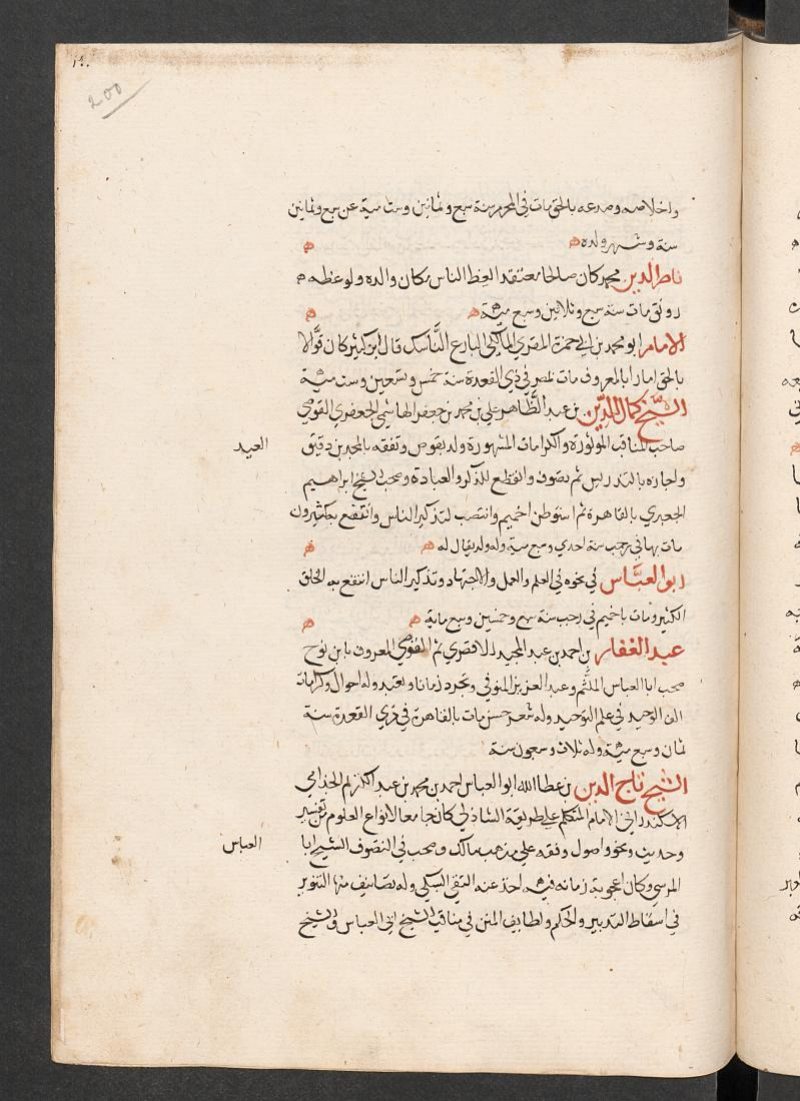 ١٣٠
200
واخلاصه وصدعه بالحق مات في المحرم سنة سبع وثمانين وست مية عن سبع وثمانين
سنة وشهر ولده
ناصر الدين محمد كان صالحا معتقد الوعظ الناس مكان والده ولوعظه
رونق مات سنة سبع وثلاثين وسبع مية
الامام ابو محمد بن ابي حمزة المصري المالكي البارع الناسك قال ابن كثير كان قوالا
بالحق امارا بالمعروف مات بمصر في ذي القعدة سنة خمس وتسعين وست مية
الشيخ كمال الدين بن عبد الظاهر علي بن محمد بن جعفر الهاشمي الجعفري القوصي
صاحب المناقب الموثورة والكرامات المشهورة ولد بقوص وتفقه بالمجد بن دقيق العيد
واجازه بالتدريس ثم تصوف وانقطع للذكر والعبادة وصحب الشيخ ابراهيم
الجعبري بالقاهرة ثم استوطن اخميم وانتصب لتذكير الناس وانتفع به كثيرون
مات بها في رجب سنة احدي وسبع مية وله ولد يقال له
ابو العباس في نحوه في العلم والعمل والاجتهاد وتذكير الناس انتفع به الخلق
الكثير ومات باخميم في رجب سنة سبع وخمسين وسبع ماية
عبد الغفار بن احمد بن عبد المجيد الاقصري ثم القوصي المعروف بابن نوح
صحب ابا العباس الملثم وعبد العزيز المنوفي وتجرد زمانا وتعبد وله احوال وكرامات
الف الوحيد في علم التوحيد وله شعر حسن مات بالقاهرة في ذي القعدة سنة
ثمان وسبع مية وله ثلاث وسبعون سنة
الشيخ تاج الدين بن عطا الله ابو العباس احمد بن محمد بن عبد الكريم الجذامي
الاسكندراني الامام المتكلم علي طريقة الشاذلي كان جامعا لانواع العلوم من تفسير
وحديث ونحو واصول وفقه علي مذهب مالك وصحب في التصوف الشيخ ابا العباس
المرسي وكان اعجوبة زمانه فيه اخذ عنه التقي السبكي وله تصانيف منها التنوير
في اسقاط التدبير والحكم ولطايف المنن في مناقب الشيخ ابي العباس والشيخ